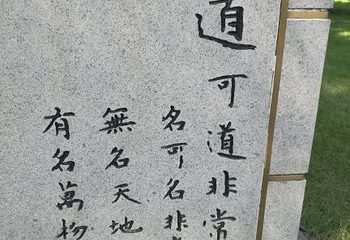 道可道非常
名可名非
無名天地
有名萬物